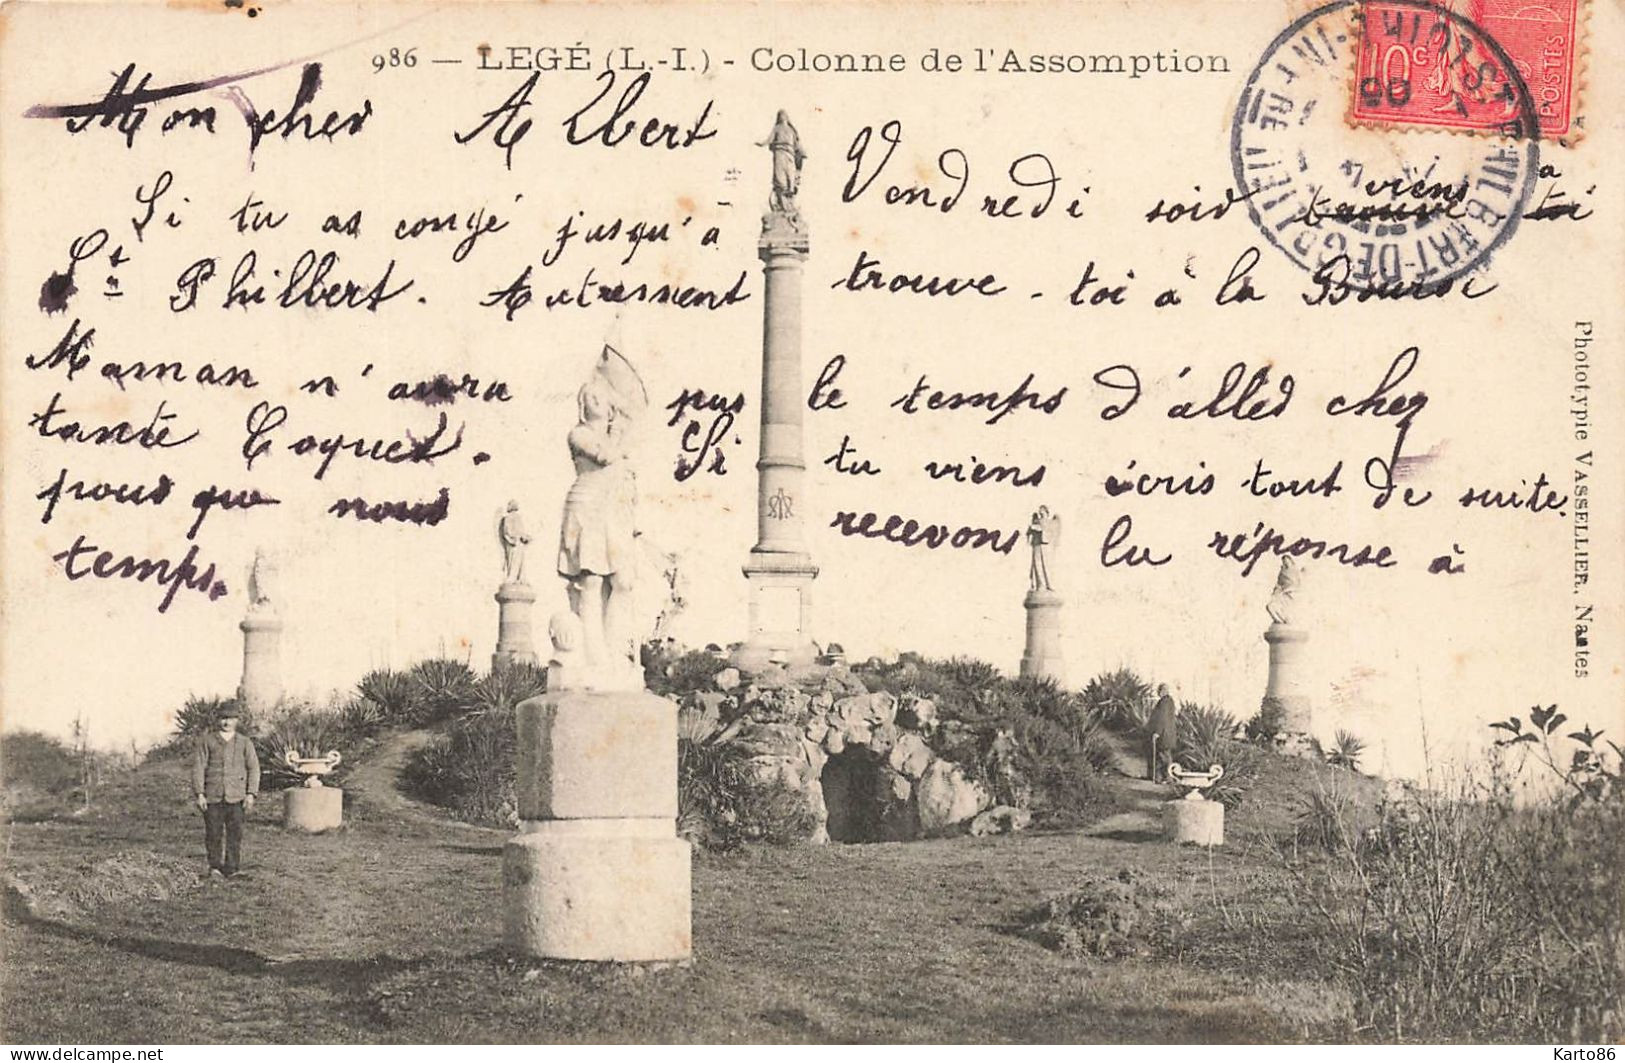 986 — LEGÉ (L.-I.) - Colonne de l'Assomption
10c
POSTES
ST PHILBERT-DE-GRAND-LIEU
LOIRE-INFRE
Mon cher Albert
Si tu as congé jusqu'à Vendredi soir trouve viens toi a
St Philbert. Autrement trouve-toi à la Bourse
Maman n'aura pas le temps d'aller chez
tante Coquet. Si tu viens écris tout de suite.
pour que nous recevons la réponse à
temps.
Phototypie VASSELLIER, Nantes
delcampe.net
Karto86